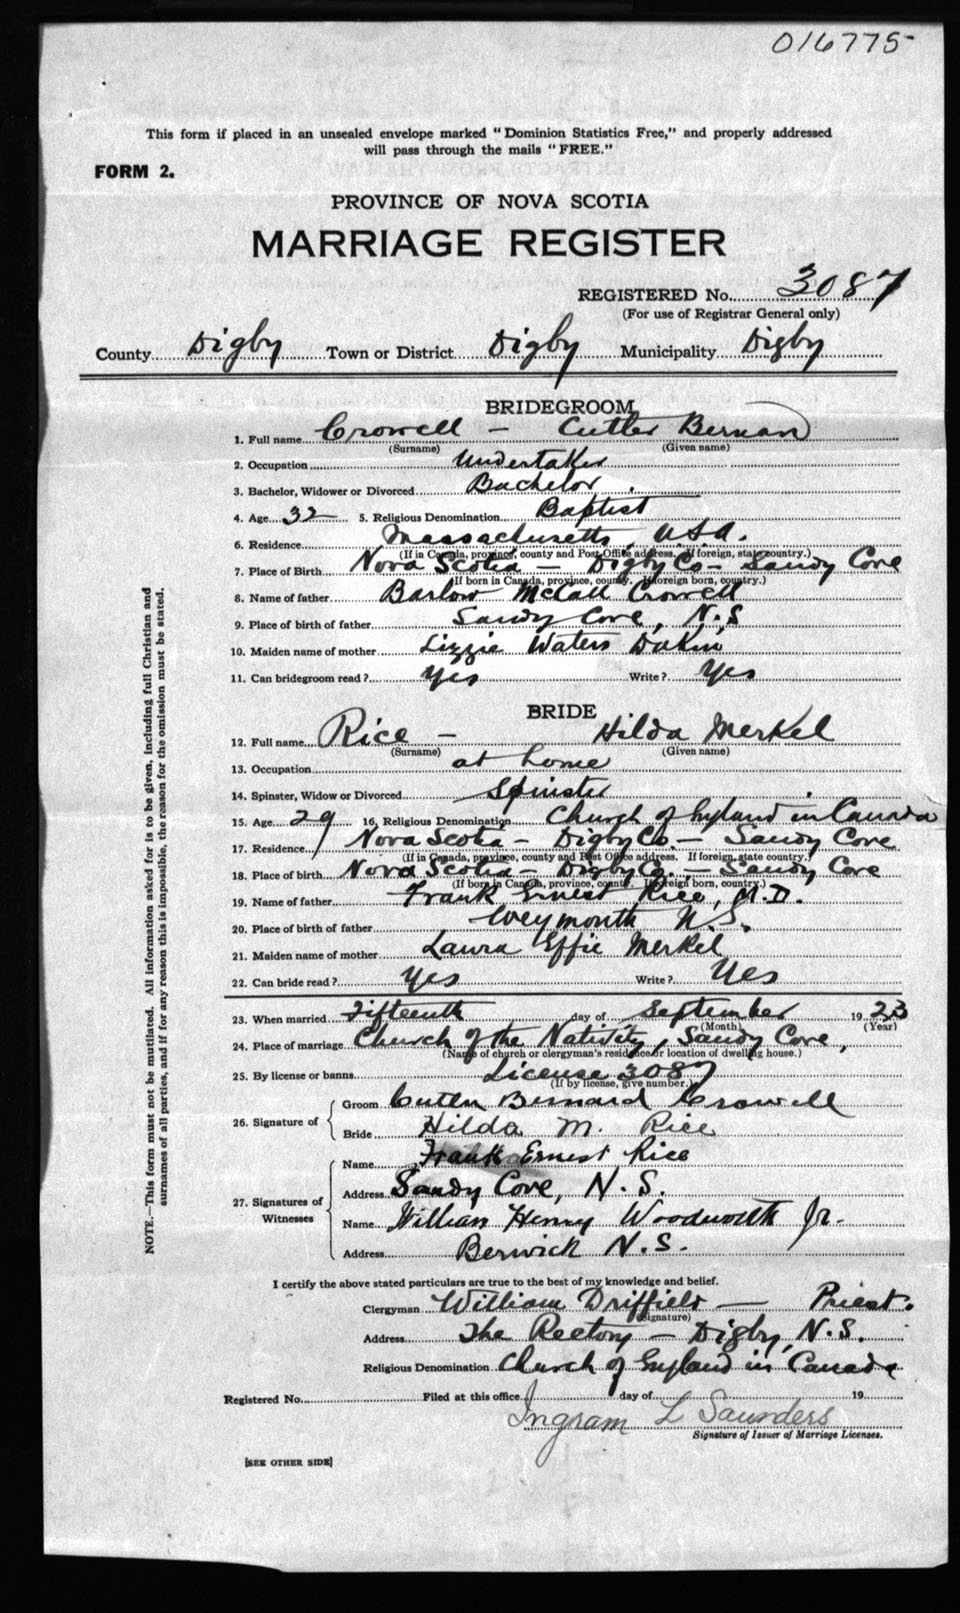 016775
This form if placed in an unsealed envelope marked "Dominion Statistics Free," and properly addressed
will pass through the mails "FREE."
FORM 2.
PROVINCE OF NOVA SCOTIA
MARRIAGE REGISTER
REGISTERED No. 3087
(For use of Registrar General only)
County Digby Town or District Digby Municipality Digby
BRIDEGROOM
1. Full name Crowell - Cutler Bernan
(Surname) (Given name)
2. Occupation Undertaker
3. Bachelor, Widower or Divorced Bachelor.
4. Age 32 5. Religious Denomination Baptist
6. Residence Massachusetts, USA.
(If in Canada, province, county and Post Office address. If foreign, state country.)
7. Place of Birth Nova Scotia - Digby Co - Sandy Cove
(If born in Canada, province, county. If foreign born, country.)
8. Name of father Barlow McCall Crowell
9. Place of birth of father Sandy Cove, N.S
10. Maiden name of mother Lizzie Waters Dakin
11. Can bridegroom read? Yes Write? Yes
BRIDE
12. Full name Rice - Hilda Merkel
(Surname) (Given name)
13. Occupation at home
14. Spinster, Widow or Divorced Spinster
15. Age 29 16. Religious Denomination Church of England in Canada
17. Residence Nova Scotia - Digby Co. - Sandy Cove
(If in Canada, province, county and Post Office address. If foreign, state country.)
18. Place of birth Nova Scotia - Digby Co. - Sandy Cove
(If born in Canada, province, county. If foreign born, country.)
19. Name of father Frank Ernest Rice, M.D.
20. Place of birth of father Weymouth N.S.
21. Maiden name of mother Laura Effie Merkel
22. Can bride read? Yes Write? Yes
23. When married Fifteenth day of September 1923
(Month) (Year)
24. Place of marriage Church of the Nativity, Sandy Cove,
(Name of church or clergyman's residence or location of dwelling house.)
25. By license or banns License 3087
(If by license, give number.)
26. Signature of Groom Cutler Bernard Crowell
Bride Hilda M. Rice
27. Signatures of Witnesses Name Frank Ernest Rice
Address Sandy Cove, N.S.
Name William Henry Woodworth Jr.
Address Berwick N.S.
I certify the above stated particulars are true to the best of my knowledge and belief.
Clergyman William Driffield - Priest.
(Signature)
Address The Rectory - Digby, N.S.
Religious Denomination Church of England in Canada
Registered No. Filed at this office day of 19
Ingram L Saunders
Signature of Issuer of Marriage Licenses.
[SEE OTHER SIDE]
NOTE.—This form must not be mutilated. All information asked for is to be given, including full Christian and
surnames of all parties, and if for any reason this is impossible, the reason for the omission must be stated.